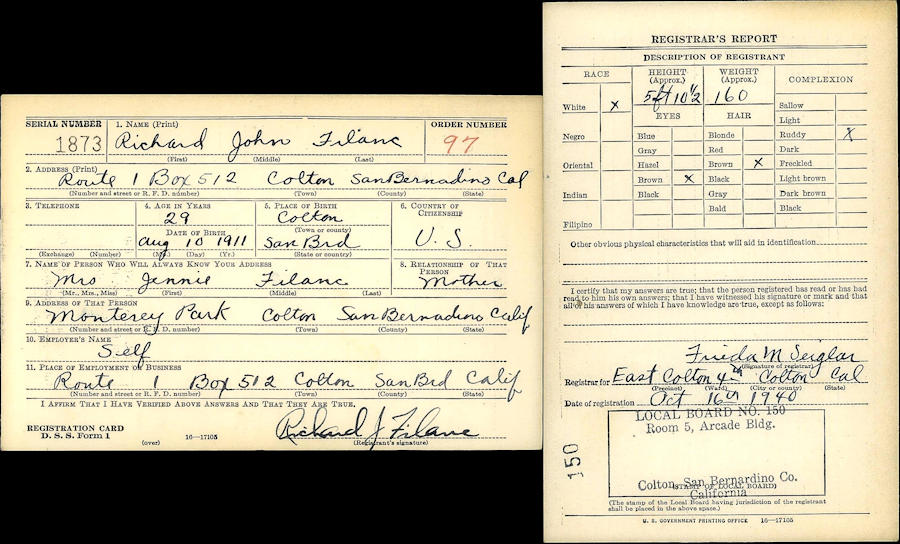 SERIAL NUMBER 1. NAME (Print) ORDER NUMBER
1873 Richard John Filanc 97
(First) (Middle) (Last)
2. ADDRESS (Print)
Route 1 Box 512 Colton San Bernadino Cal
(Number and street or R. F. D. number) (Town) (County) (State)
3. TELEPHONE 4. AGE IN YEARS 5. PLACE OF BIRTH 6. COUNTRY OF CITIZENSHIP
29 Colton
(Town or county)
DATE OF BIRTH
Aug 10 1911 San Brd U. S.
(Exchange) (Number) (Mo.) (Day) (Yr.) (State or country)
7. NAME OF PERSON WHO WILL ALWAYS KNOW YOUR ADDRESS 8. RELATIONSHIP OF THAT PERSON
Mrs Jennie Filanc Mother
(Mr., Mrs., Miss) (First) (Middle) (Last)
9. ADDRESS OF THAT PERSON
Monterey Park Colton San Bernadino Calif
(Number and street or R. F. D. number) (Town) (County) (State)
10. EMPLOYER'S NAME
Self
11. PLACE OF EMPLOYMENT OR BUSINESS
Route 1 Box 512 Colton San Brd Calif
(Number and street or R. F. D. number) (Town) (County) (State)
I AFFIRM THAT I HAVE VERIFIED ABOVE ANSWERS AND THAT THEY ARE TRUE.
REGISTRATION CARD
D. S. S. Form 1 16—17105 Richard J Filanc
(over) (Registrant's signature)
REGISTRAR'S REPORT
DESCRIPTION OF REGISTRANT
RACE HEIGHT (Approx.) WEIGHT (Approx.) COMPLEXION
White x 5ft 10 1/2 160 Sallow
EYES HAIR Light
Negro Blue Blonde Ruddy x
Gray Red Dark
Oriental Hazel Brown x Freckled
Brown x Black Light brown
Indian Black Gray Dark brown
Bald Black
Filipino
Other obvious physical characteristics that will aid in identification
I certify that my answers are true; that the person registered has read or has had
read to him his own answers; that I have witnessed his signature or mark and that
all of his answers of which I have knowledge are true, except as follows:
Frieda M Seiglar
(Signature of registrar)
Registrar for East Colton 4th Colton Cal
(Precinct) (Ward) (City or county) (State)
Date of registration Oct 16th 1940
LOCAL BOARD NO. 150
Room 5, Arcade Bldg.
150
Colton, San Bernardino Co.
(STAMP OF LOCAL BOARD)
California
(The stamp of the Local Board having jurisdiction of the registrant
shall be placed in the above space.)
U. S. GOVERNMENT PRINTING OFFICE 16—17105